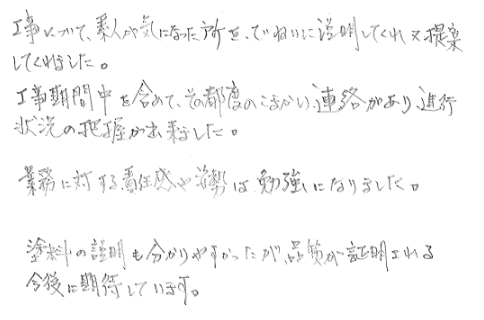 工事において、素人が気になった所を、ていねいに説明してくれ又提案
してくれました。
工事期間中を含めて、その都度のこまかい連絡があり、進行
状況の把握が出来ました。
業務に対する責任感や姿勢は勉強になりました。
塗料の説明も分かりやすかったが、品質が証明される
今後に期待しています。